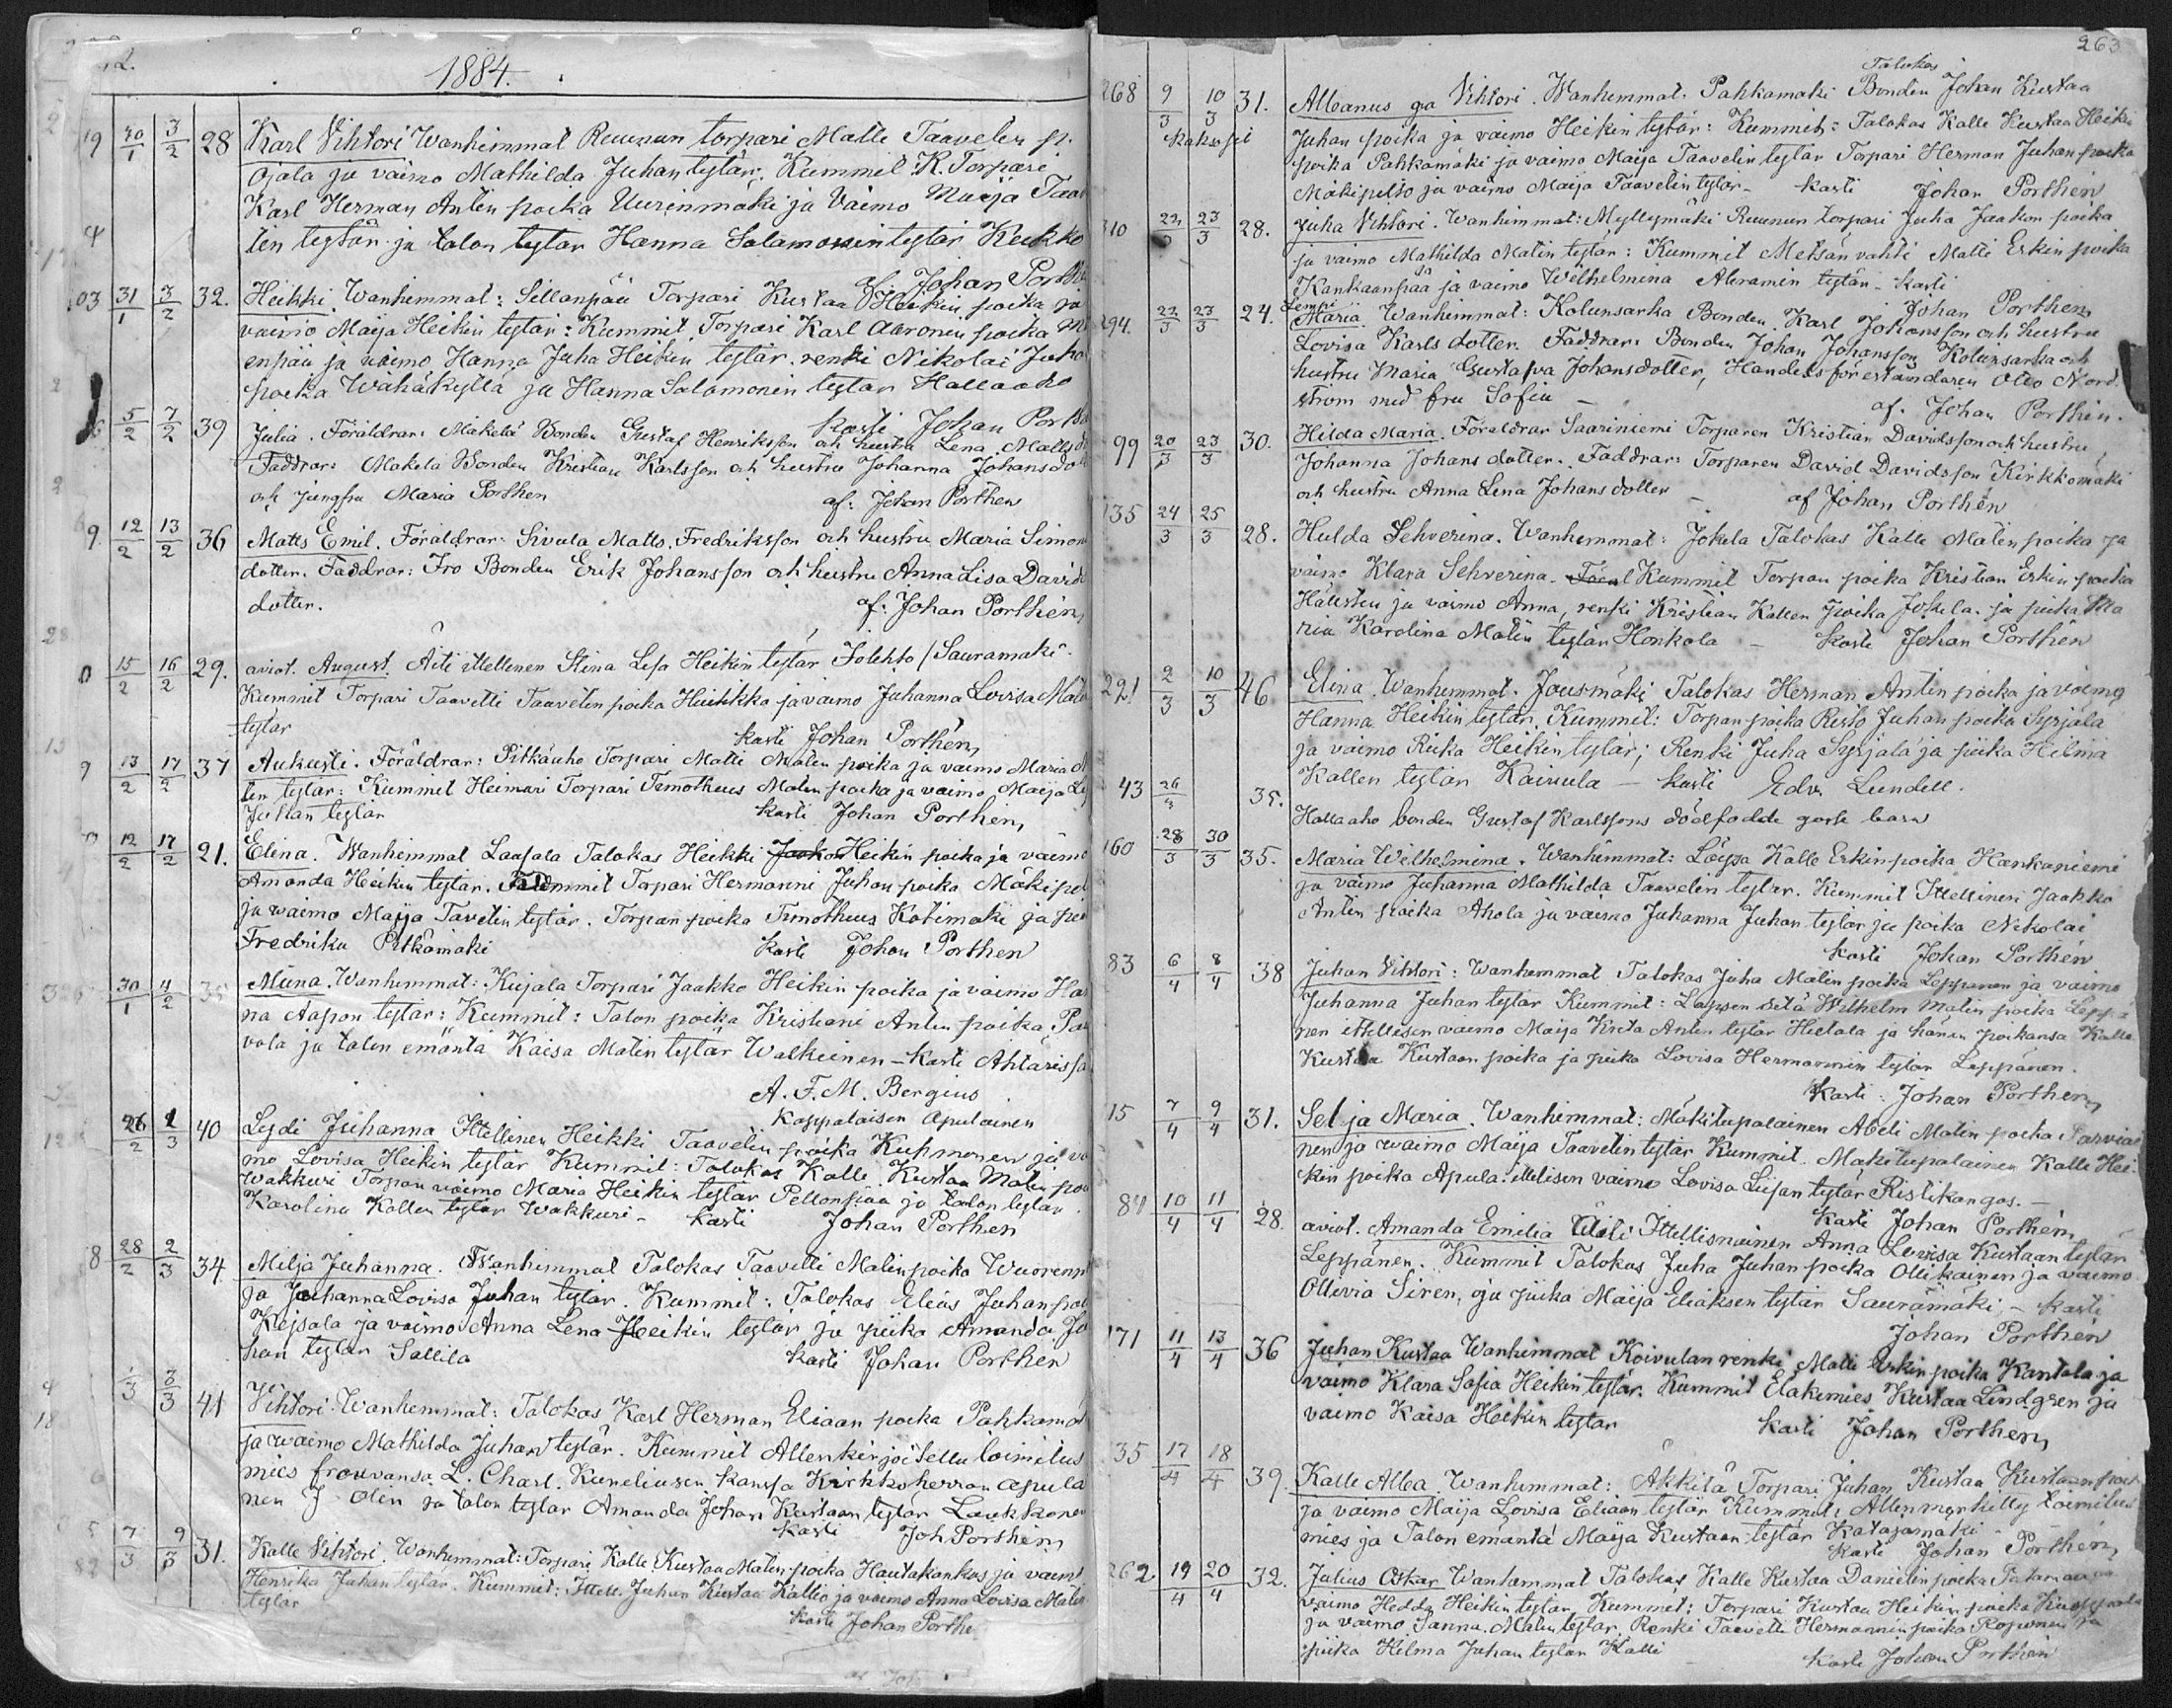 1884.
19 30/1 3/2 28 Karl Vihtori Wanhimmat Ruunun torpari Matti Taavelin p.
Ojala ja vaimo Mathilda Juhan tytär. Kummit K. Torpari
Karl Herman Antin poika Uurinmäki ja Vaimo Maija Taav
tin tytär ja talon tytär Hanna Salamonin tytär Keikko
af Johan Porth
03 31/1 3/2 32. Heikki Wanhimmat: Sillanpää Torpari Kustaa Heikin poika ja
vaimo Maija Heikin tytär: Kummit Torpari Karl Aaronen poika
enpää ja vaimo Hanna Juha Heikin tytär. renki Nikolai Juha
poika Wähäkyllä ja Hanna Salamonin tytär Hallaaho
kasti Johan Porth
5/2 7/2 39 Julia. Föräldrar: Mäkelä Bonden Gustaf Henriksson och hustru Lena Matts
Faddrar: Makela Bonden Kristian Karlsson och hustru Johanna Johansdo
och jungfru Maria Porthen af: Johan Porthen
9. 12/2 13/2 36 Matts Emil. Föräldrar: Sivula Matts Fredriksson och hustru Maria Simon
dotter. Faddrar: Iro Bonden Erik Johansson och hustru Anna Lisa David
dotter. af: Johan Porthén
0 15/2 16/2 29. aviot. August. Äiti ittellinen Stina Lisa Heikin tytär Isolehto / Sauramäki
Kummit Torpari Taavetti Taavetin poika Huhkko ja vaimo Juhanna Lovisa
tytär kasti Johan Porthén
9 13/2 17/2 37 Aukusti. Föräldrar: Pitkäaho Torpari Matti Matin poika ja vaimo Maria
tin tytär: Kummit Heimari Torpari Timotheus Matin poika ja vaimo Maija
Juhan tytär kasti Johan Porthen
12/2 17/2 21. Elina. Wanhimmat Laasala Talokas Heikki Heikin poika ja vaimo
Amanda Heikin tytär. Kummit Torpari Hermanni Juhan poika Mäkipel
ja waimo Maija Tavetin tytär. Torpan poika Timotheus Kotimäki ja pii
Fredrika Pitkämäki kasti Johan Porthen
326 30/1 4/2 35 Miina. Wanhimmat: Kujala Torpari Jaakko Heikin poika ja vaimo Han
na Aapon tytär: Kummit: Talon poika Kristiani Antin poika Pau
vola ja talon emäntä Kaisa Matin tytär Walkiinen - kasti Ahtärissä
A. F. M. Bergius
Kappalaisen Apulainen
26/2 1/3 40 Lydi Juhanna Ittellinen Heikki Taavetin poika Kuhmonen ja va
mo Lovisa Heikin tytär Kummit: Talokas Kalle Kustaa Matin poi
Wakkuri Torpan vaimo Maria Heikin tytär Pellonpää ja talon tytär
Karolina Kallen tytär Wakkuri - kasti Johan Porthen
8 28/2 2/3 34 Milja Juhanna. Wanhimmat Talokas Taavetti Matin poika Wuorenm
ja Juhanna Lovisa Juhan tytär. Kummit: Talokas Elias Juhan poi
Kejsala ja vaimo Anna Lena Heikin tytär ja piika Amanda Ju
han tytär Sallila kasti Johan Porthen
1/3 3/3 41 Vihtori. Wanhemmat: Talokas Karl Herman Eliaan poika Pahkamä
ja waimo Mathilda Juhan tytär. Kummit Allenkirjoitettu toimitus
mies frouvansa L. Charl. Kuneliusen kanssa Kirkkoherran apulai
nen J Olin ja talon tytär Amanda Johan Kustaan tytär Laukkonen
kasti Joh. Porthén
5 7/3 9/3 31. Kalle Vihtori. Wanhimmat: Torpari Kalle Kustaa Matin poika Hautakankas ja vaimo
Henrika Juhan tytär. Kummit: Ittell. Juhan Kustaa Kallio ja vaimo Anna Lovisa Matin
tytär kasti Johan Porthe
263
Talokas
268 9/3 10/3 31. Albanus ga Vihtori. Wanhimmat: Pahkamaki Bonden Johan Kustaa
Kakspit Juhan poika ja vaimo Heikin tytär: Kummit: Talokas Kalle Kustaa Heikin
poika Pahkamäki ja vaimo Maija Taavelin tytär Torpari Herman Juhan poika
Mäkipelto ja vaimo Maija Taavetin tytär - kasti Johan Porthén
310 22/3 23/3 28. Juha Vihtori. Wanhimmat: Myllymäki Ruunun torpari Juha Jaakon poika
ja vaimo Mathilda Matin tytär: Kummit Metsän vahti Matti Erkin poika
Kankaanpää ja vaimo Wilhelmina Abramin tytär - kasti
Johan Porthen
Lempi
294. 22/3 23/3 24. Maria Wanhimmat: Kolunsarka Bonden Karl Johansson och hustru
Lovisa Karls dotter. Faddrar: Bonden Johan Johansson Kolunsarka och
hustru Maria Gustafva Johansdotter, Handels föreståndaren Otto Nord
ström med fru Sofia - af. Johan Porthén.
99 20/3 23/3 30. Hilda Maria. Föräldrar Saariniemi Torparen Kristian Davidsson och hustru
Johanna Johans dotter. Faddrar: Torparen David Davidsson Kirkkomäki
och hustru Anna Lena Johans dotter - af Johan Porthén
135 24/3 25/3 28. Hulda Sehverina. Wanhemmat: Jokela Talokas Kalle Matin poika ja
vaimo Klara Sehverina. Kummit Torpan poika Kristian Erkin poika
Hällstin ja vaimo Anna, renki Kristian Kallen poika Jokela. ja piika Ma
ria Karolina Matin tytär Honkola - kasti Johan Porthén
221 2/3 10/3 46 Elina. Wanhemmat. Jousmäki Talokas Herman Antin poika ja vaimo
Hanna Heikin tytär. Kummit: Torpan poika Risto Juhan poika Syrjälä
ja vaimo Riika Heikin tytär; Renki Juha Syrjälä ja piika Hilma
Kallen tytär Kaivula - kasti Edv. Lundell.
43 26/3 35. Hallaaho bonden Gustaf Karlssons dödfödde gosse barn
160 28/3 30/3 35. Maria Wilhelmina. Wanhimmat: Löysä Kalle Erkin poika Hankaniemi
ja vaimo Juhanna Mathilda Taavelin tytär. Kummit Ittellinen Jaakko
Antin poika Ahola ja vaimo Juhanna Juhan tytär ja poika Nikolai
kasti Johan Porthén
83 6/4 8/4 38 Juhan Vihtori: Wanhemmat Talokas Juha Matin poika Leppanen ja vaimo
Juhanna Juhan tytär Kummit: Lapsen setä Wilhelm Matin poika Leppä
nen ittellisen vaimo Maija Kreta Antin tytär Hietala ja hänen poikansa Kalle
Kustaa Kustaan poika ja piika Lovisa Hermannin tytär Leppänen.
kasti: Johan Porthen
15 7/4 9/4 31. Sel ja Maria. Wanhimmat: Mäkitupalainen Abeli Matin poika Parviai
nen ja waimo Maija Taavetin tytär Kummit Mäkitupalainen Kalle Hei
kin poika Apula. ittelisen vaimo Lovisa Liisan tytär Ristikangas. -
kasti Johan Porthén
84 10/4 11/4 28. aviot. Amanda Emilia Äiti Ittellisnainen Anna Lovisa Kustaan tytär
Leppänen. Kummit Talokas Juha Juhan poika Ollikainen ja vaimo
Ollivia Siren, ja piika Maija Eliaksen tytär Saurämäki, - kasti
Johan Porthén
171 11/4 13/4 36 Juhan Kustaa Wanhimmat Koivulan renki Matti Erkin poika Kantala ja
vaimo Klara Sofia Heikin tytär. Kummit Eläkemies Kustaa Lindgren ja
vaimo Kaisa Heikin tytär kasti Johan Porthen
35 17/4 18/4 39. Kalle Alba. Wanhimmat: Äkkilä Torpari Juhan Kustaa Kustaan poik
ja vaimo Maija Lovisa Eliaan tytär Kummit: Allenmerkitty toimitus
mies ja Talon emäntä Maija Kustaan tytär Katajamäki -
kasti Johan Porthén
262 19/4 20/4 32. Julius Oskar Wanhammat Talokas Kalle Kustaa Danielin poika
vaimo Hedda Heikin tytär. Kummit: Torpari Kustaa Heikin poika Kuoppala
ja vaimo Sanna Matin tytär. Renki Taavetti Hermannin poika Roponen ja
piika Hilma Juhan tytär Kalli kasti Johan Porthén